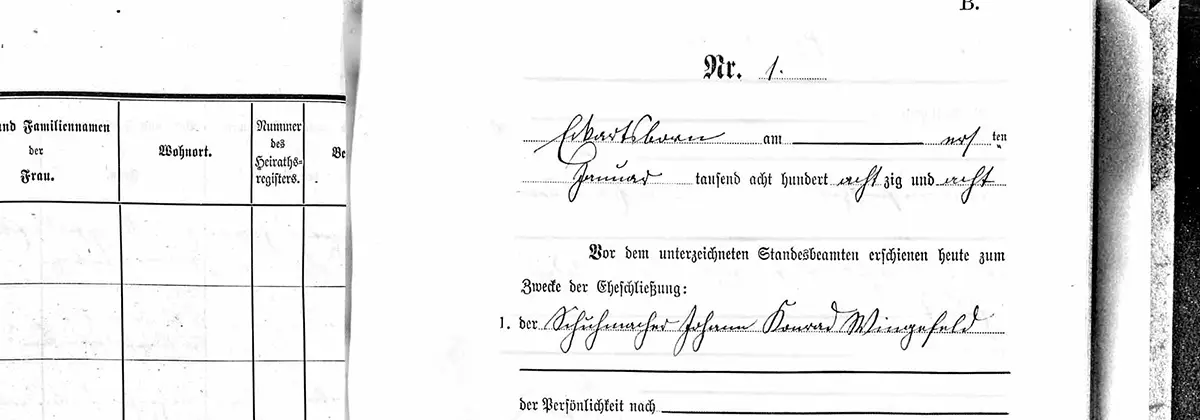 B.
Nr. 1.
Eckartsborn am ersten
Januar tausend acht hundert achtzig und acht
Vor dem unterzeichneten Standesbeamten erschienen heute zum
Zwecke der Eheschließung:
1. der Schuhmacher Johann Konrad Wingefeld
der Persönlichkeit nach
und Familiennamen
der
Frau.
Wohnort.
Nummer
des
Heiraths-
registers.
Be